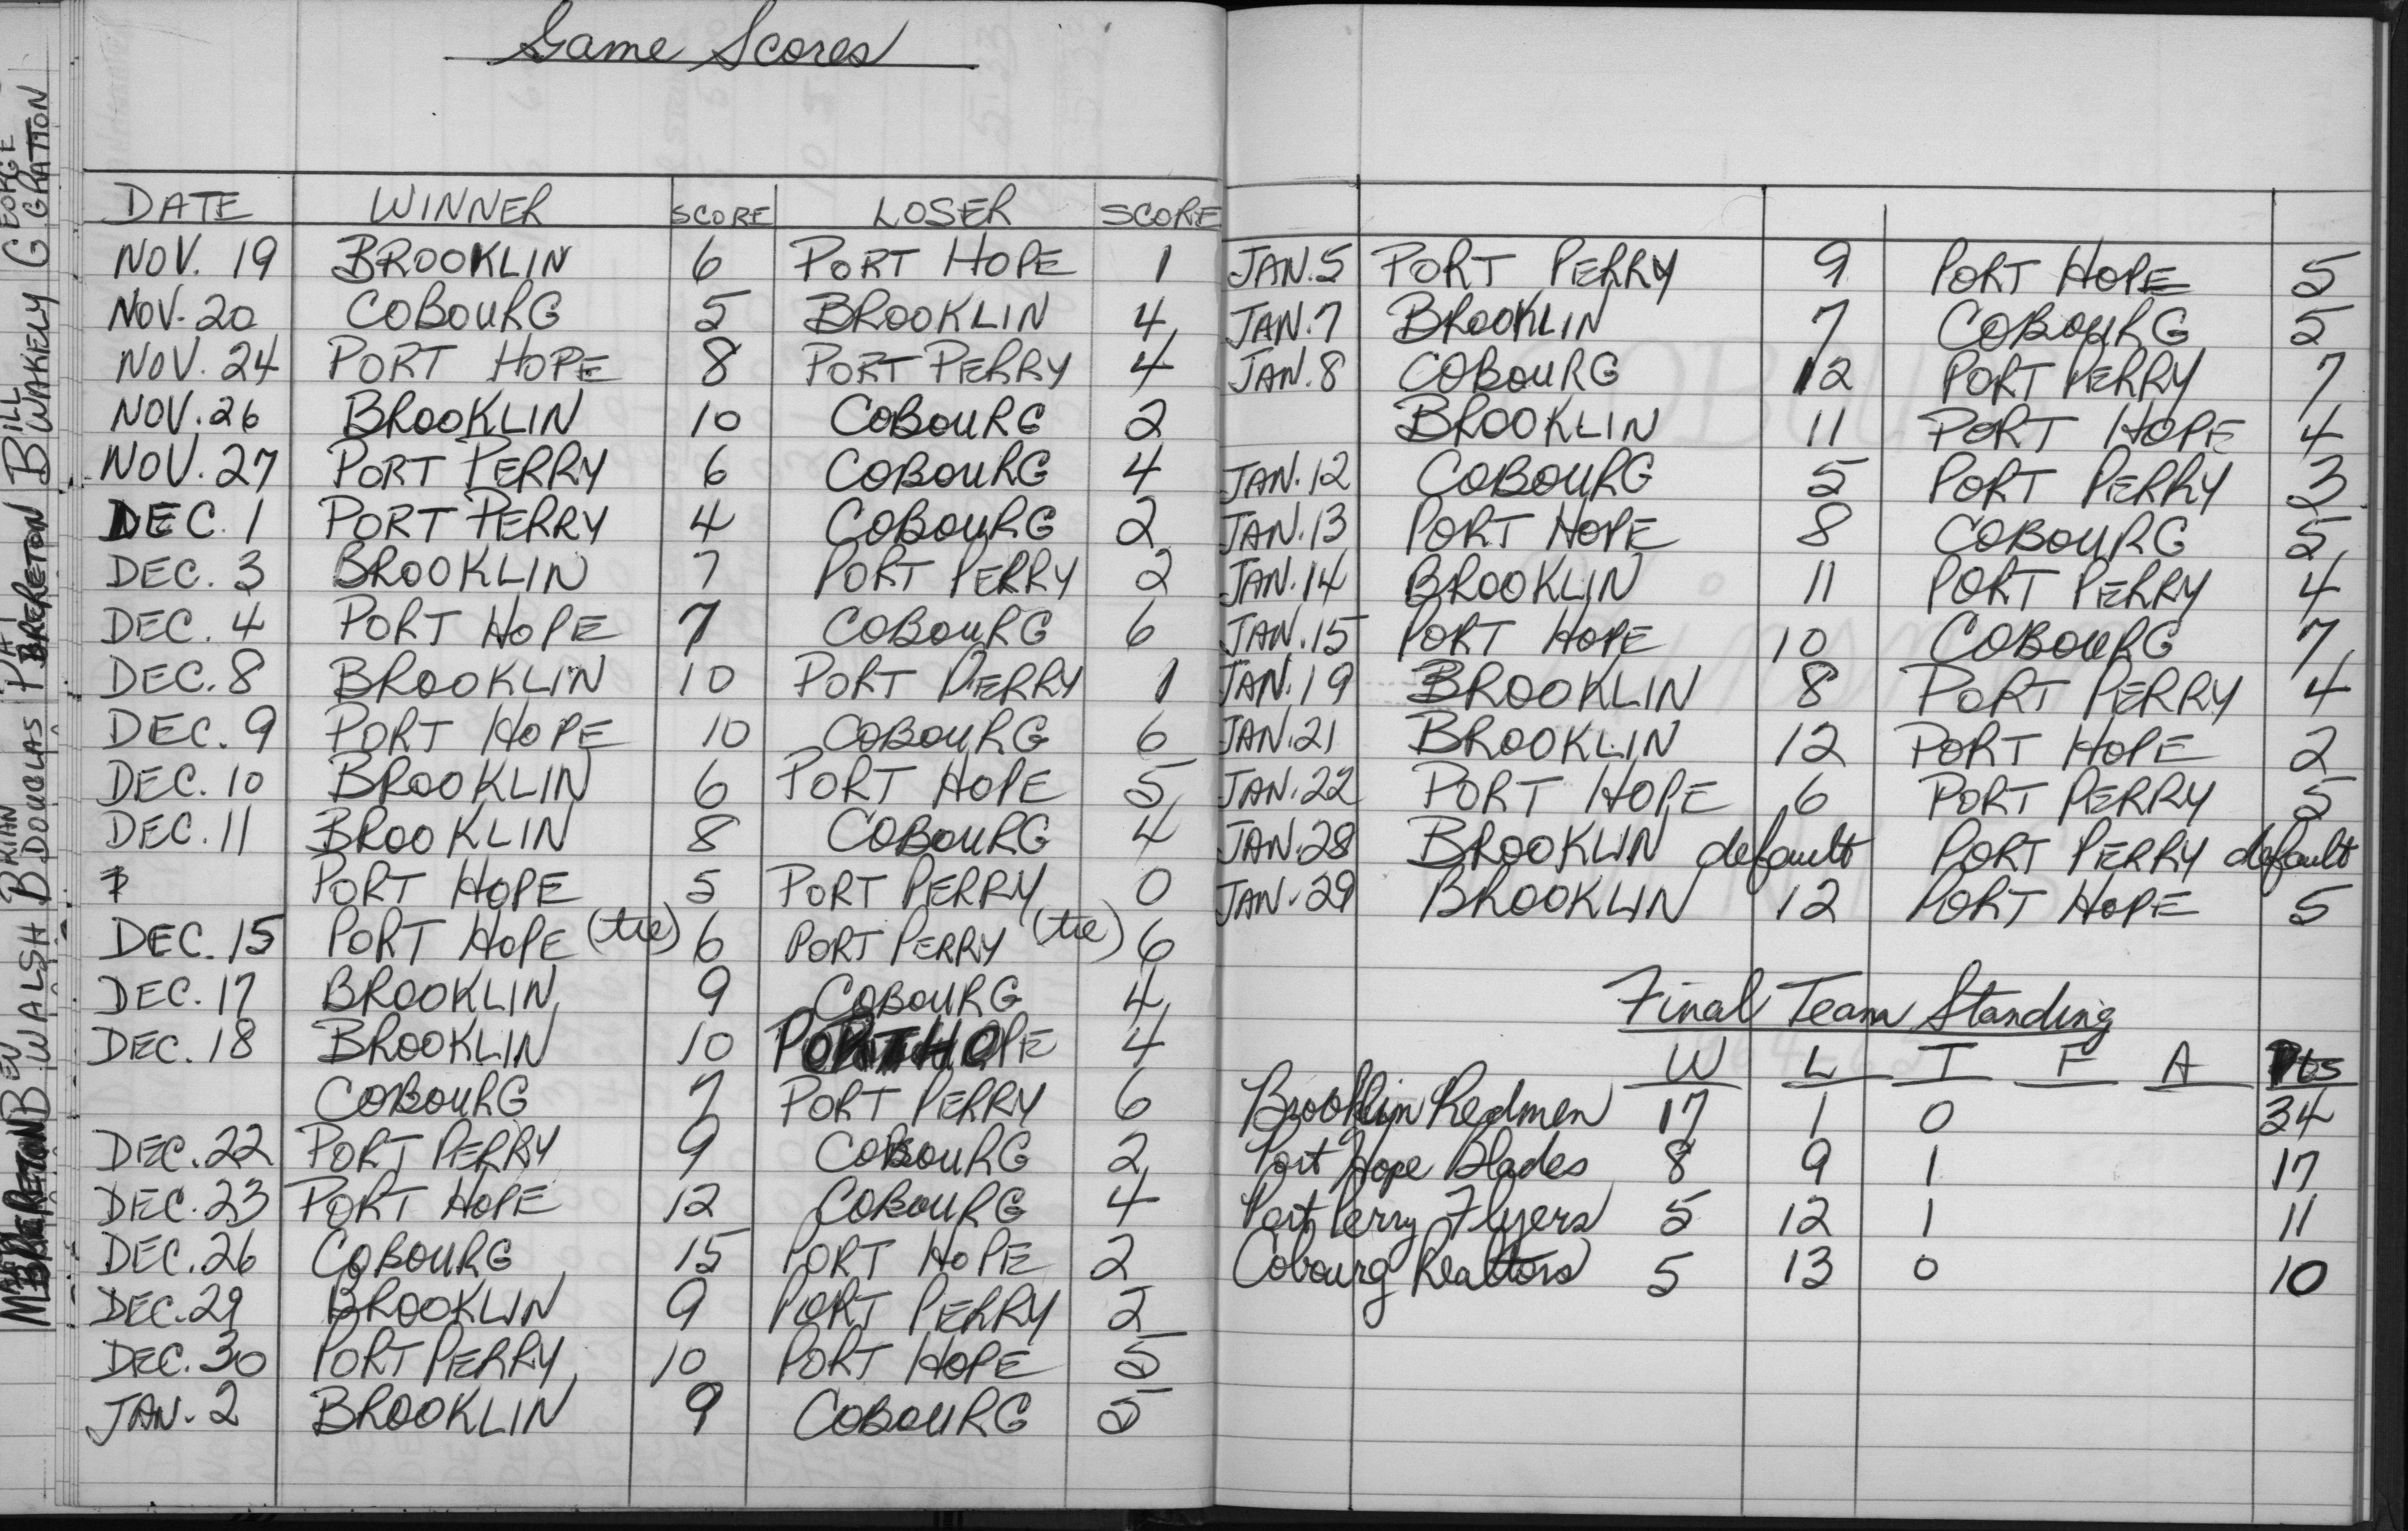 Game Scores
DATE WINNER SCORE LOSER SCORE
NOV. 19 BROOKLIN 6 PORT HOPE 1
NOV. 20 COBOURG 5 BROOKLIN 4
NOV. 24 PORT HOPE 8 PORT PERRY 4
NOV. 26 BROOKLIN 10 COBOURG 2
NOV. 27 PORT PERRY 6 COBOURG 4
DEC. 1 PORT PERRY 4 COBOURG 2
DEC. 3 BROOKLIN 7 PORT PERRY 2
DEC. 4 PORT HOPE 7 COBOURG 6
DEC. 8 BROOKLIN 10 PORT PERRY 1
DEC. 9 PORT HOPE 10 COBOURG 6
DEC. 10 BROOKLIN 6 PORT HOPE 5
DEC. 11 BROOKLIN 8 COBOURG 4
PORT HOPE 5 PORT PERRY 0
DEC. 15 PORT HOPE (tie) 6 PORT PERRY (tie) 6
DEC. 17 BROOKLIN 9 COBOURG 4
DEC. 18 BROOKLIN 10 PORT HOPE 4
COBOURG 7 PORT PERRY 6
DEC. 22 PORT PERRY 9 COBOURG 2
DEC. 23 PORT HOPE 12 COBOURG 4
DEC. 26 COBOURG 15 PORT HOPE 2
DEC. 29 BROOKLIN 9 PORT PERRY 2
DEC. 30 PORT PERRY 10 PORT HOPE 5
JAN. 2 BROOKLIN 9 COBOURG 5
JAN. 5 PORT PERRY 9 PORT HOPE 5
JAN. 7 BROOKLIN 7 COBOURG 5
JAN. 8 COBOURG 12 PORT PERRY 7
BROOKLIN 11 PORT HOPE 4
JAN. 12 COBOURG 5 PORT PERRY 3
JAN. 13 PORT HOPE 8 COBOURG 5
JAN. 14 BROOKLIN 11 PORT PERRY 4
JAN. 15 PORT HOPE 10 COBOURG 7
JAN. 19 BROOKLIN 8 PORT PERRY 4
JAN. 21 BROOKLIN 12 PORT HOPE 2
JAN. 22 PORT HOPE 6 PORT PERRY 5
JAN. 28 BROOKLIN default PORT PERRY default
JAN. 29 BROOKLIN 12 PORT HOPE 5
Final Team Standing
W L T F A Pts
Brooklin Redmen 17 1 0 34
Port Hope Blades 8 9 1 17
Port Perry Flyers 5 12 1 11
Cobourg Realtors 5 13 0 10
GEORGE
G GRATTON
BILL
B WAKELY
PAT
BRERETON
BRIAN
B DOUGLAS
BEV
B WALSH
M BRERETON